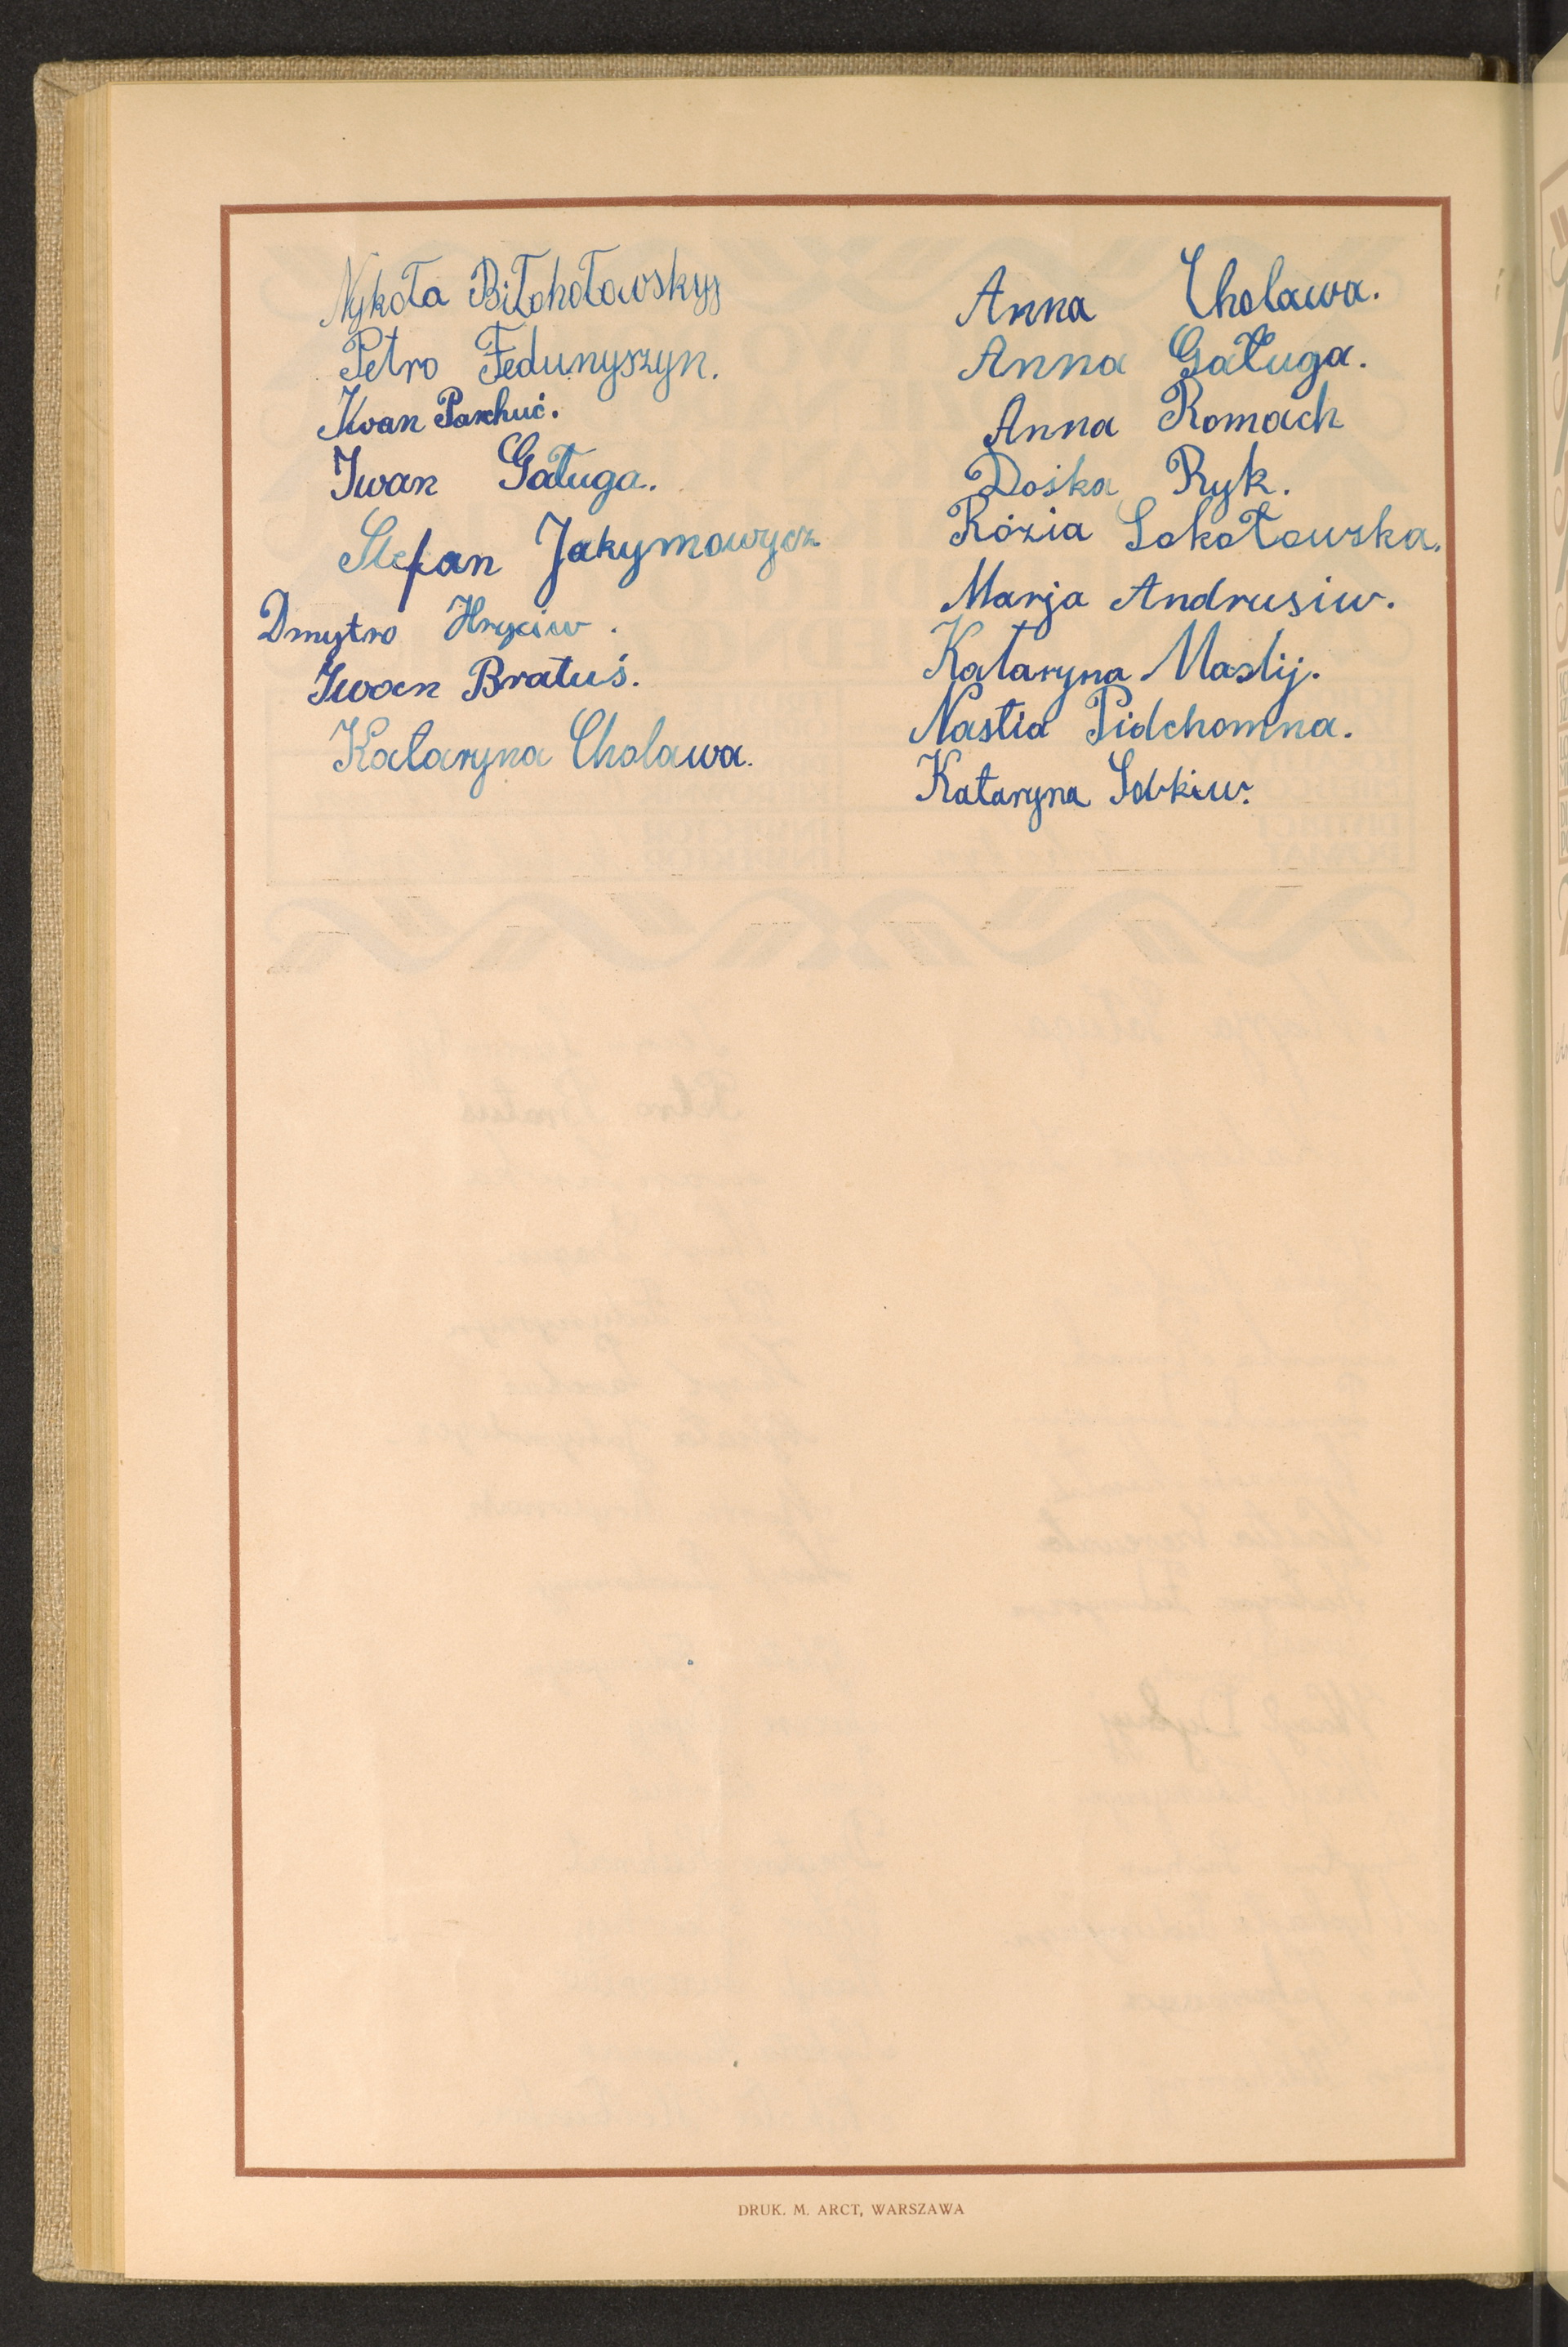 Nykoła Biłohołowskyj
Petro Fedunyszyn.
Iwan Parchuć.
Iwan Gaługa.
Stefan Jakymowycz
Dmytro Hryciw.
Iwan Bratuś.
Kataryna Cholawa.
Anna Cholawa.
Anna Gaługa.
Anna Romach
Dośka Ryk.
Rózia Sokołowska.
Marja Andrusiw.
Kataryna Maslij.
Nastia Pidchomna.
Kataryna Sobkiw.
DRUK. M. ARCT, WARSZAWA